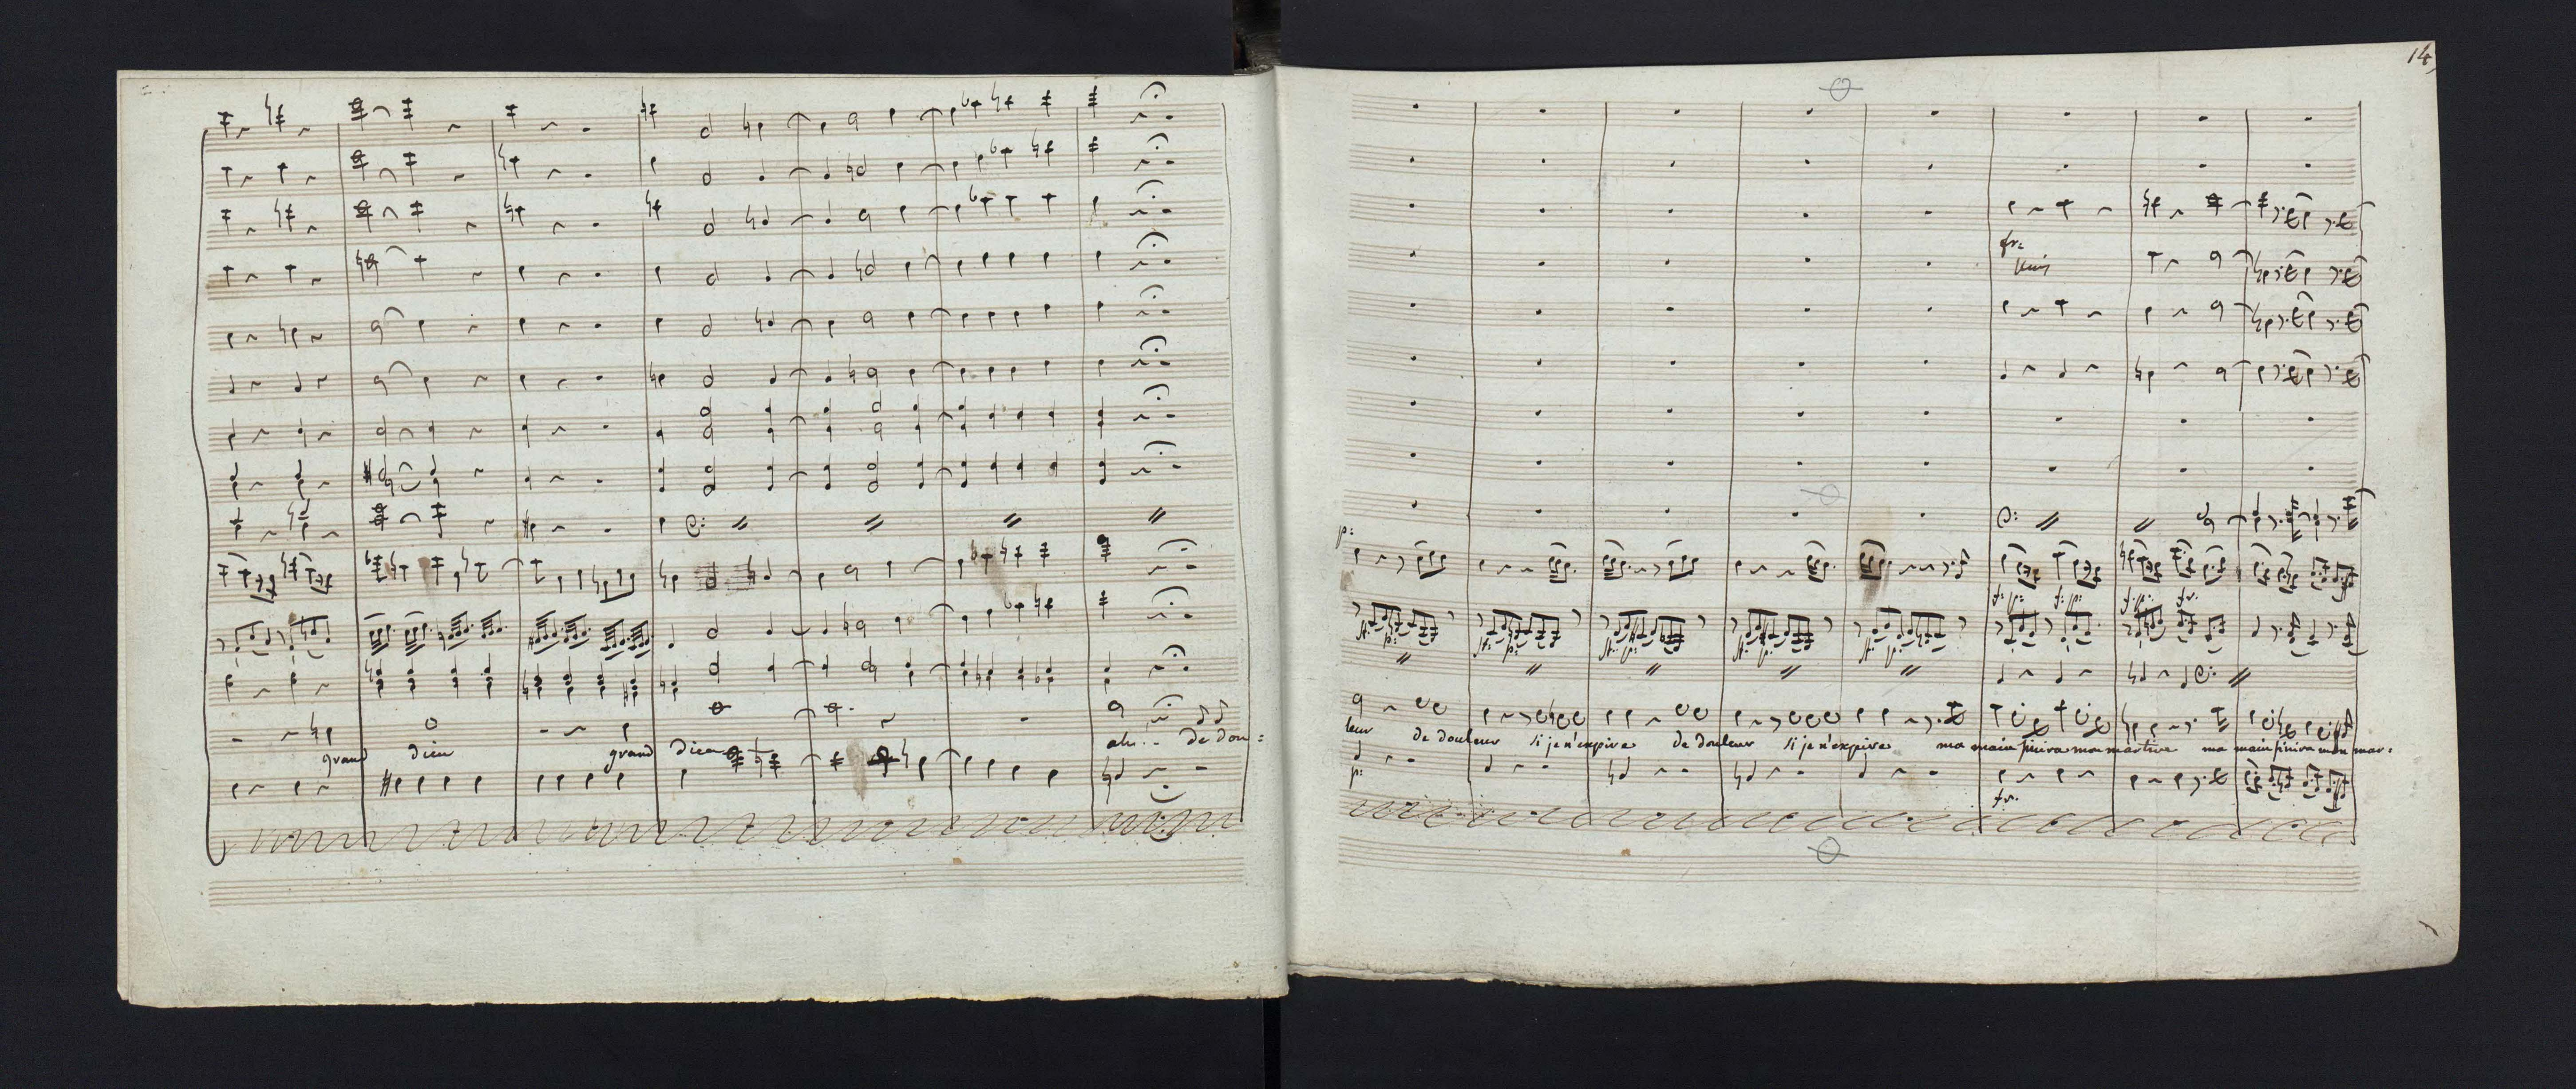 grand dieu grand dieu ah.. de dou:
14
p:
fr:
f. p: f. p: f. p. fr.
leur de douleur si je n'expire de douleur si je n'expire ma main finira mon martire ma main finira mon mar:
p:
fr.